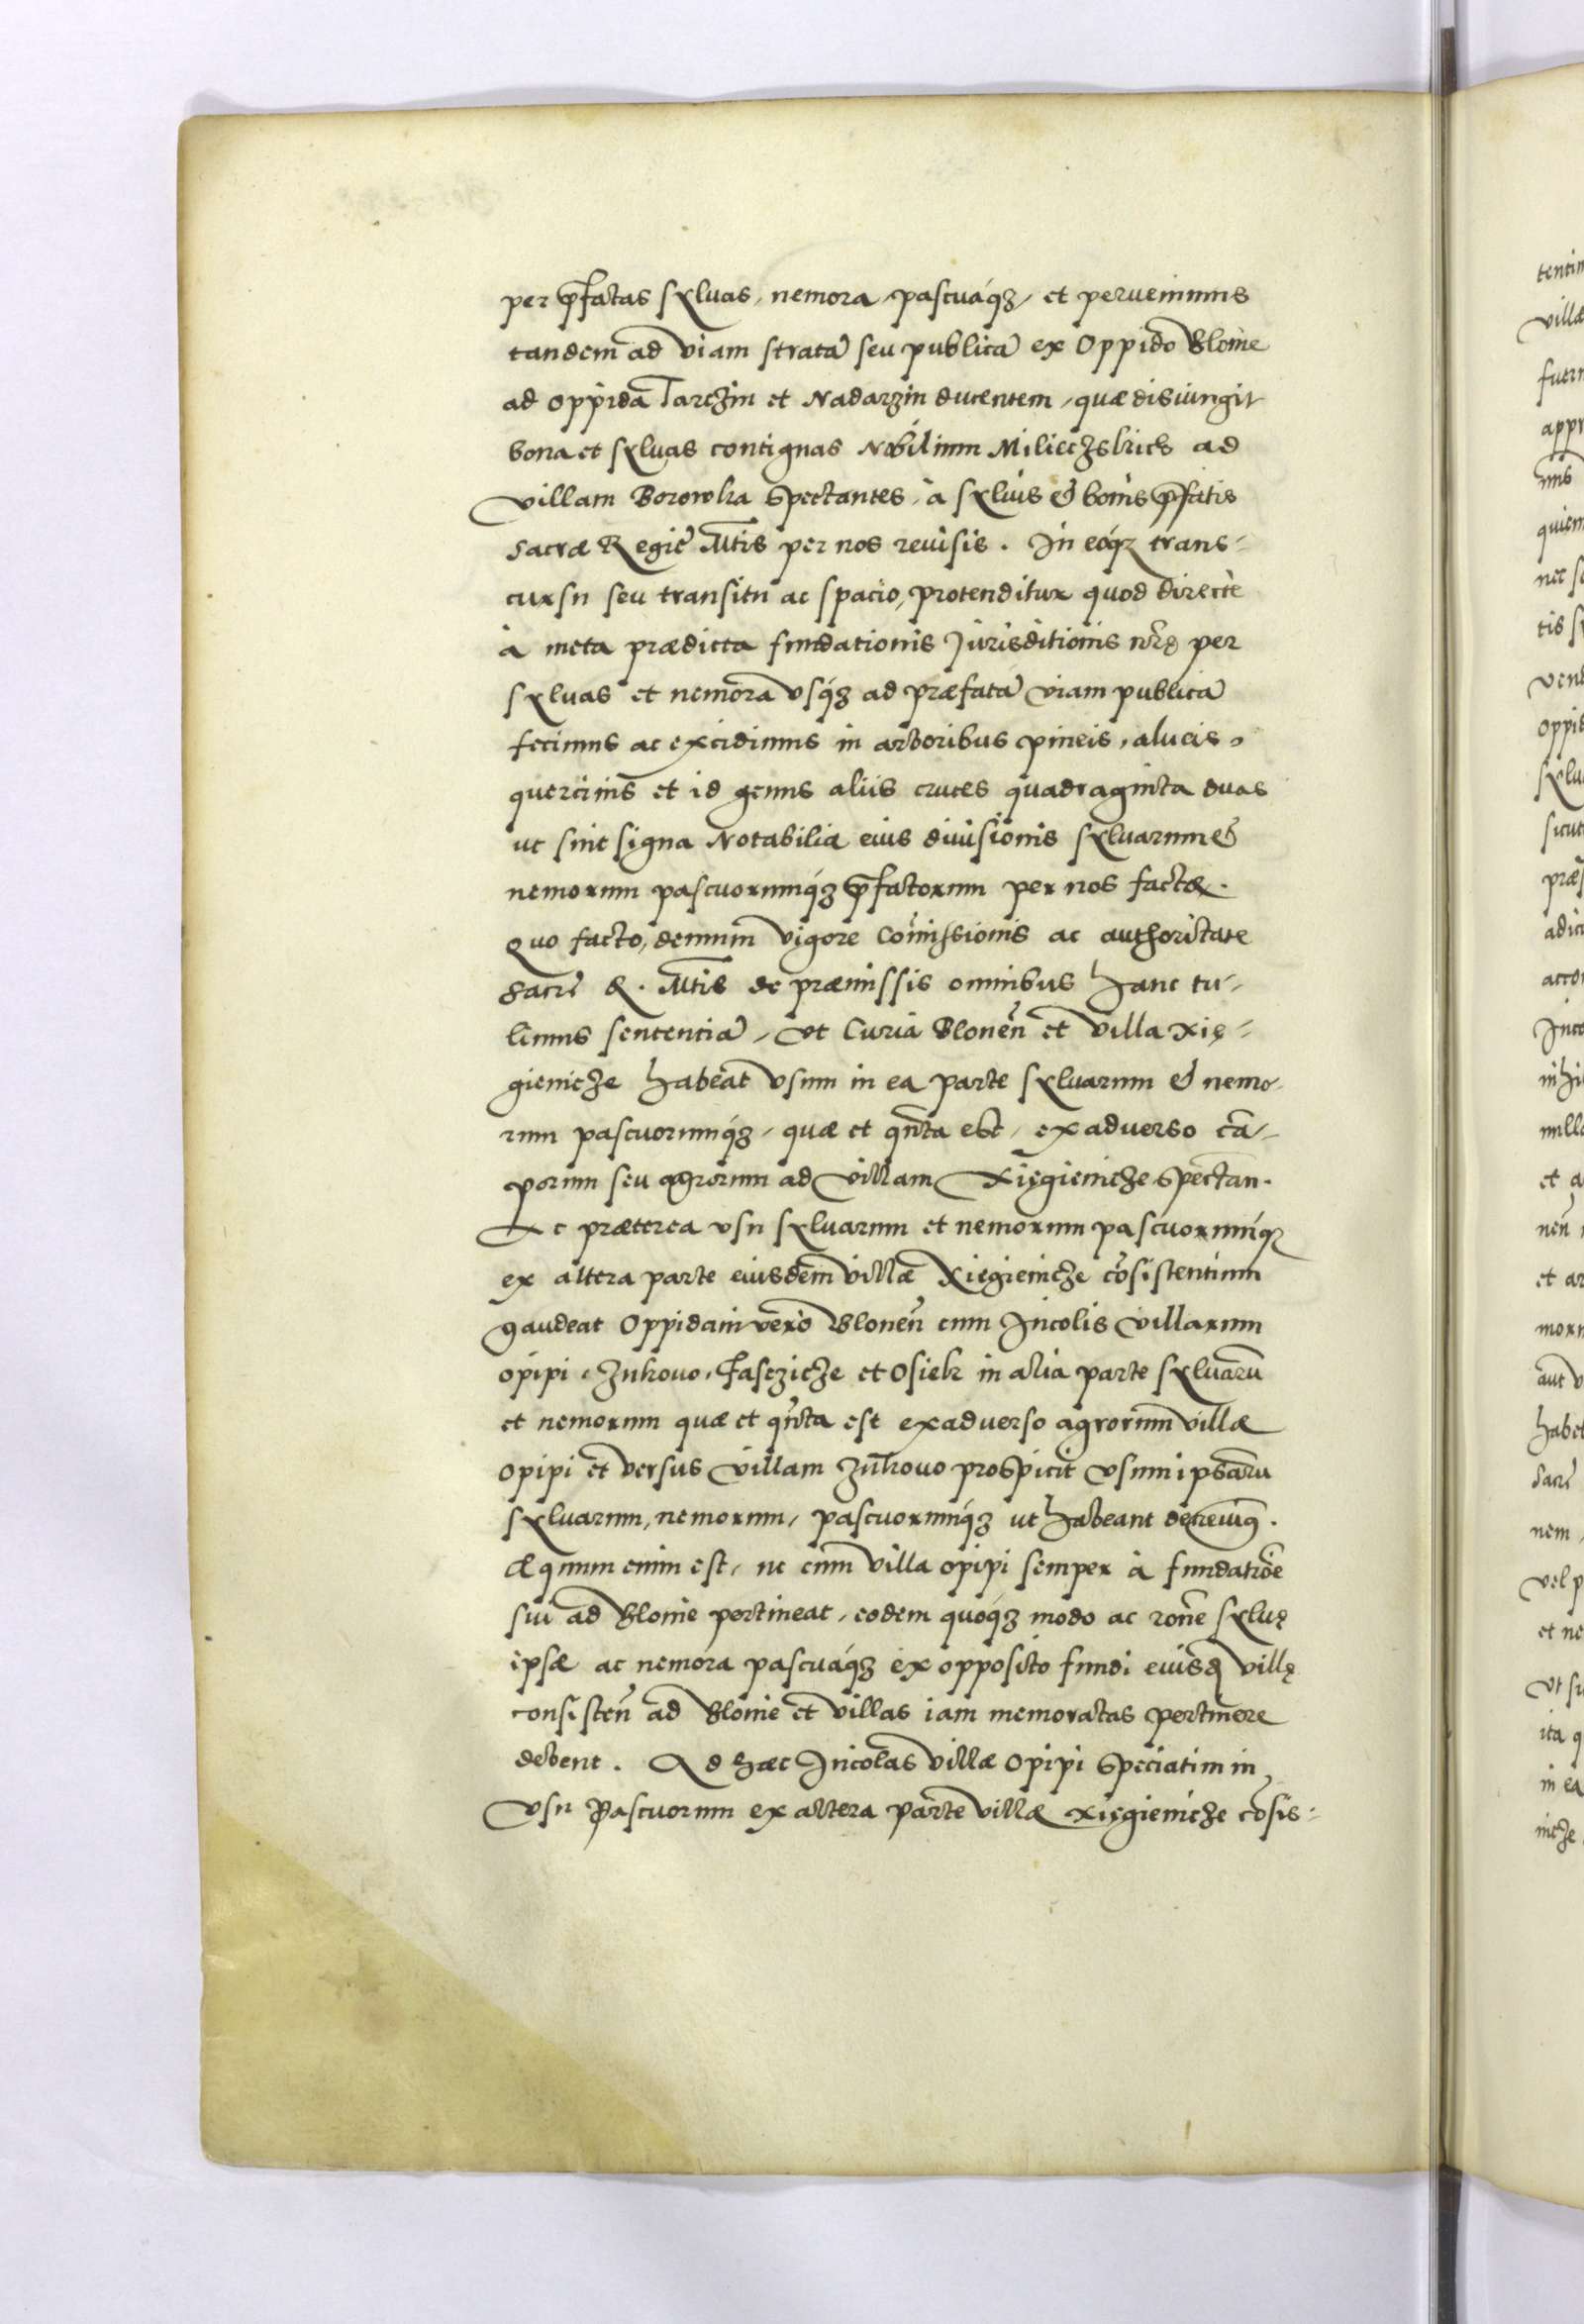 per p̄fatas sylvas, nemora, pascuaq́ʒ, et pervenimus
tandem ad viam stratā seu publicā ex Oppido Blonie
ad oppida Tarczin et Nadarzin ducentem, quæ disiungit
bona et sylvas contiguas Nobilium Milieczskich ad
villam Borowka spectantes, à sylvis & bonis p̄fatis
Sacræ Regię Mtīs per nos revisis. In eoq́ʒ trans-
cursu seu transitu ac spacio, protenditur quod directè
à meta prædicta fundationis Jurisditionis nr̄ę per
sylvas et nemora usq́ʒ ad præfatā viam publicā
fecimus ac excidimus in arboribus pineis, alneis,
quercinis et id genus aliis cruces quadraginta duas
ut sint signa Notabilia eius divisionis sylvarum &
nemorum pascuorumq́ʒ p̄fatorum per nos factæ.
Quo facto, demum vigore Com̄issionis ac authoritate
Sacrę R. Mtīs de præmissis omnibus hanc tu-
limus sententiā, Ut Curia Blonen̄ et villa Xię-
gienicze habeat usum in ea parte sylvarum & nemo-
rum pascuorumq́ʒ, quæ et qn̄ta est, ex adverso cā-
porum seu agrorum ad villam Xięgienicze spectan.
Ac præterea usu sylvarum et nemorum pascuorumq́ʒ
ex altera parte eiusdem villæ Xiegienicze cōsistentium
gaudeat Oppidani verò Blonen̄ cum Incolis villarum
Opipi, Zukovo, Fasczicze et Osiek in alia parte sylvarū
et nemorum quæ et qn̄ta est ex adverso agrorum villæ
Opipi et versus villam Zukovo prospicit usum ipsarū
sylvarum, nemorum, pascuorumq́ʒ ut habeant
Æquum enim est, ut cum villa Opipi semper à fundatiōe
sui ad Blonie pertineat, eodem quoq́ʒ modo ac rōne sylvę
ipsæ ac nemora pascuaq́ʒ ex opposito fundi eiusdē villę
consisten̄ ad Blonie et villas iam memoratas pertinere
debent. Ad hæc Incolas villæ Opipi speciatim in
usu Pascuorum ex altera parte villæ Xięgienicze cōsis-